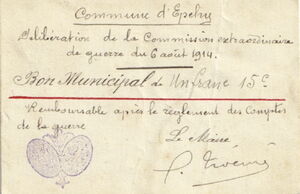 Commune d'Epehy
Délibération de la Commission extraordinaire
de guerre du 6 août 1914.
Bon Municipal de Un franc 15c
Remboursable après le règlement des Comptes
de la guerre
Le Maire